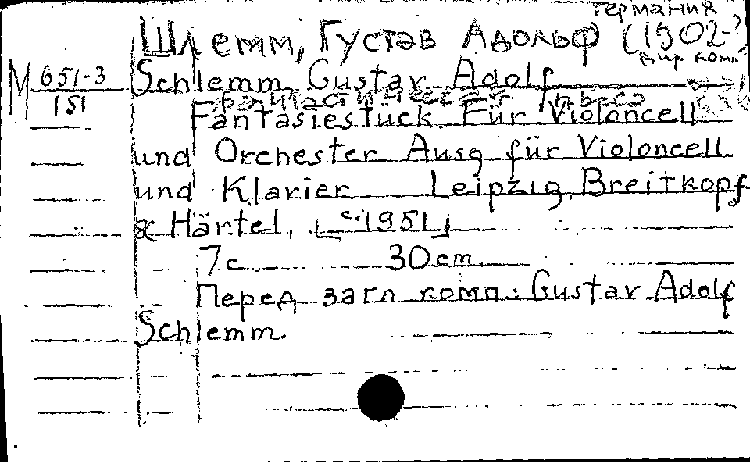 Германия
Шлемм, Густав Адольф (1902-)
дир. комп.
М 651-3
151
Schlemm, Gustav Adolf
Фантастическая пьеса
Fantasiestück Für Violoncell
und Orchester Ausg für Violoncell
und Klavier Leipzig, Breitkopf
& Härtel, [c. 1951]
7 с 30 cm.
Перед загл комп.: Gustav Adolf
Schlemm.